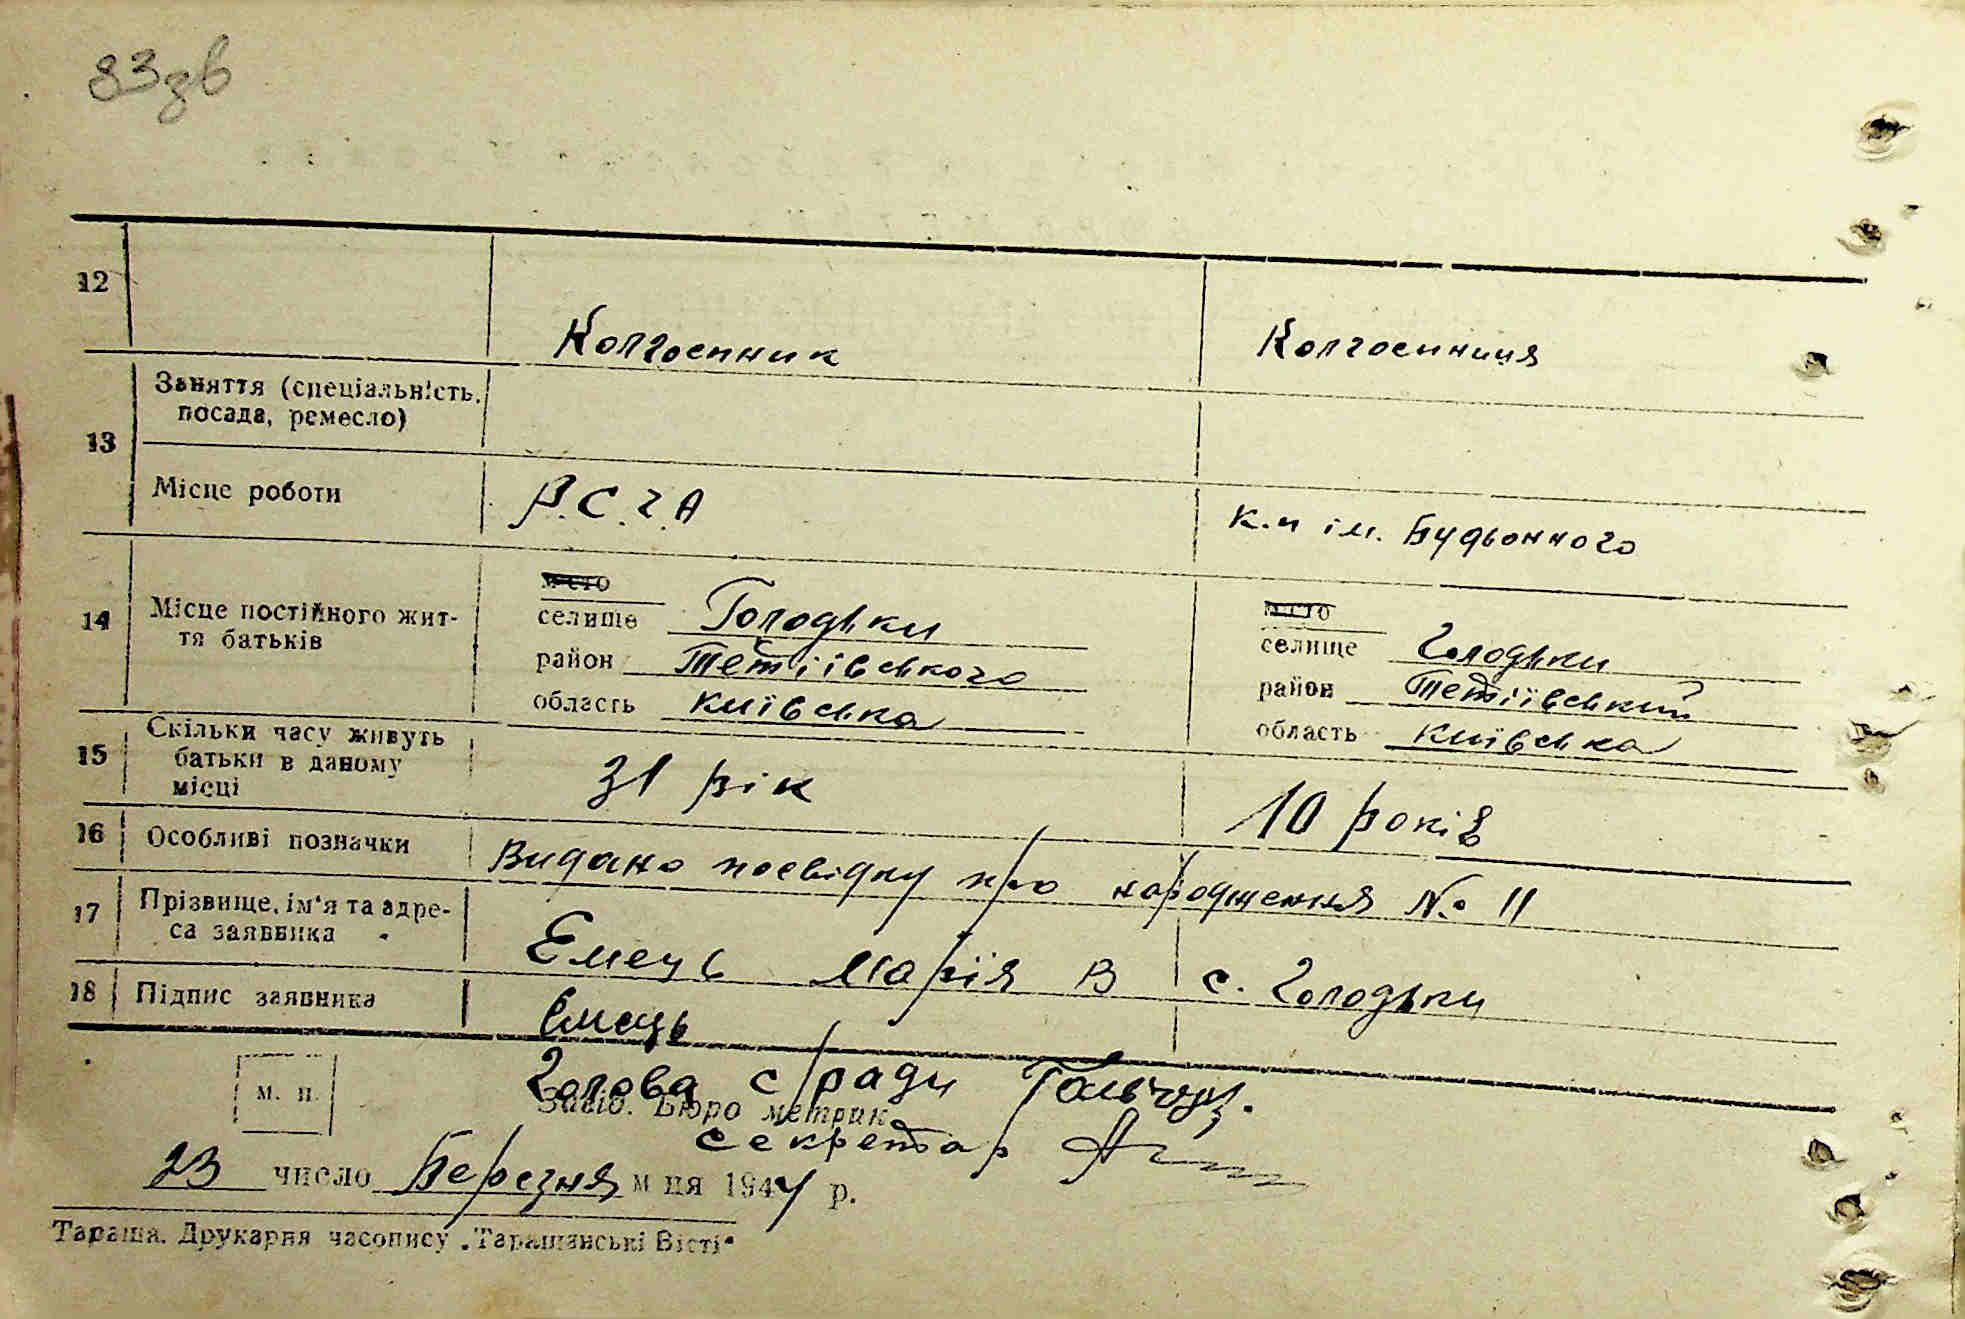 83зв
12 Колгоспник Колгоспниця
13 Заняття (спеціальність, посада, ремесло)
Місце роботи Р.С.Ч.А к.и ім. Будьонного
14 Місце постійного життя батьків
місто місто
селище Голодьки селище Голодьки
район Тетіївського район Тетіївський
область Київська область Київська
15 Скільки часу живуть батьки в даному місці 31 рік 10 років
16 Особливі позначки Видано посвідку про народження № 11
17 Прізвище, ім'я та адреса заявника Ємець Марія В с. Голодьки
18 Підпис заявника Ємець
Голова с/ради
м. п. Завід. Бюро метрик
секретар
23 число Березня м ця 1944 р.
Тараща. Друкарня часопису „Таращанські Вісті"